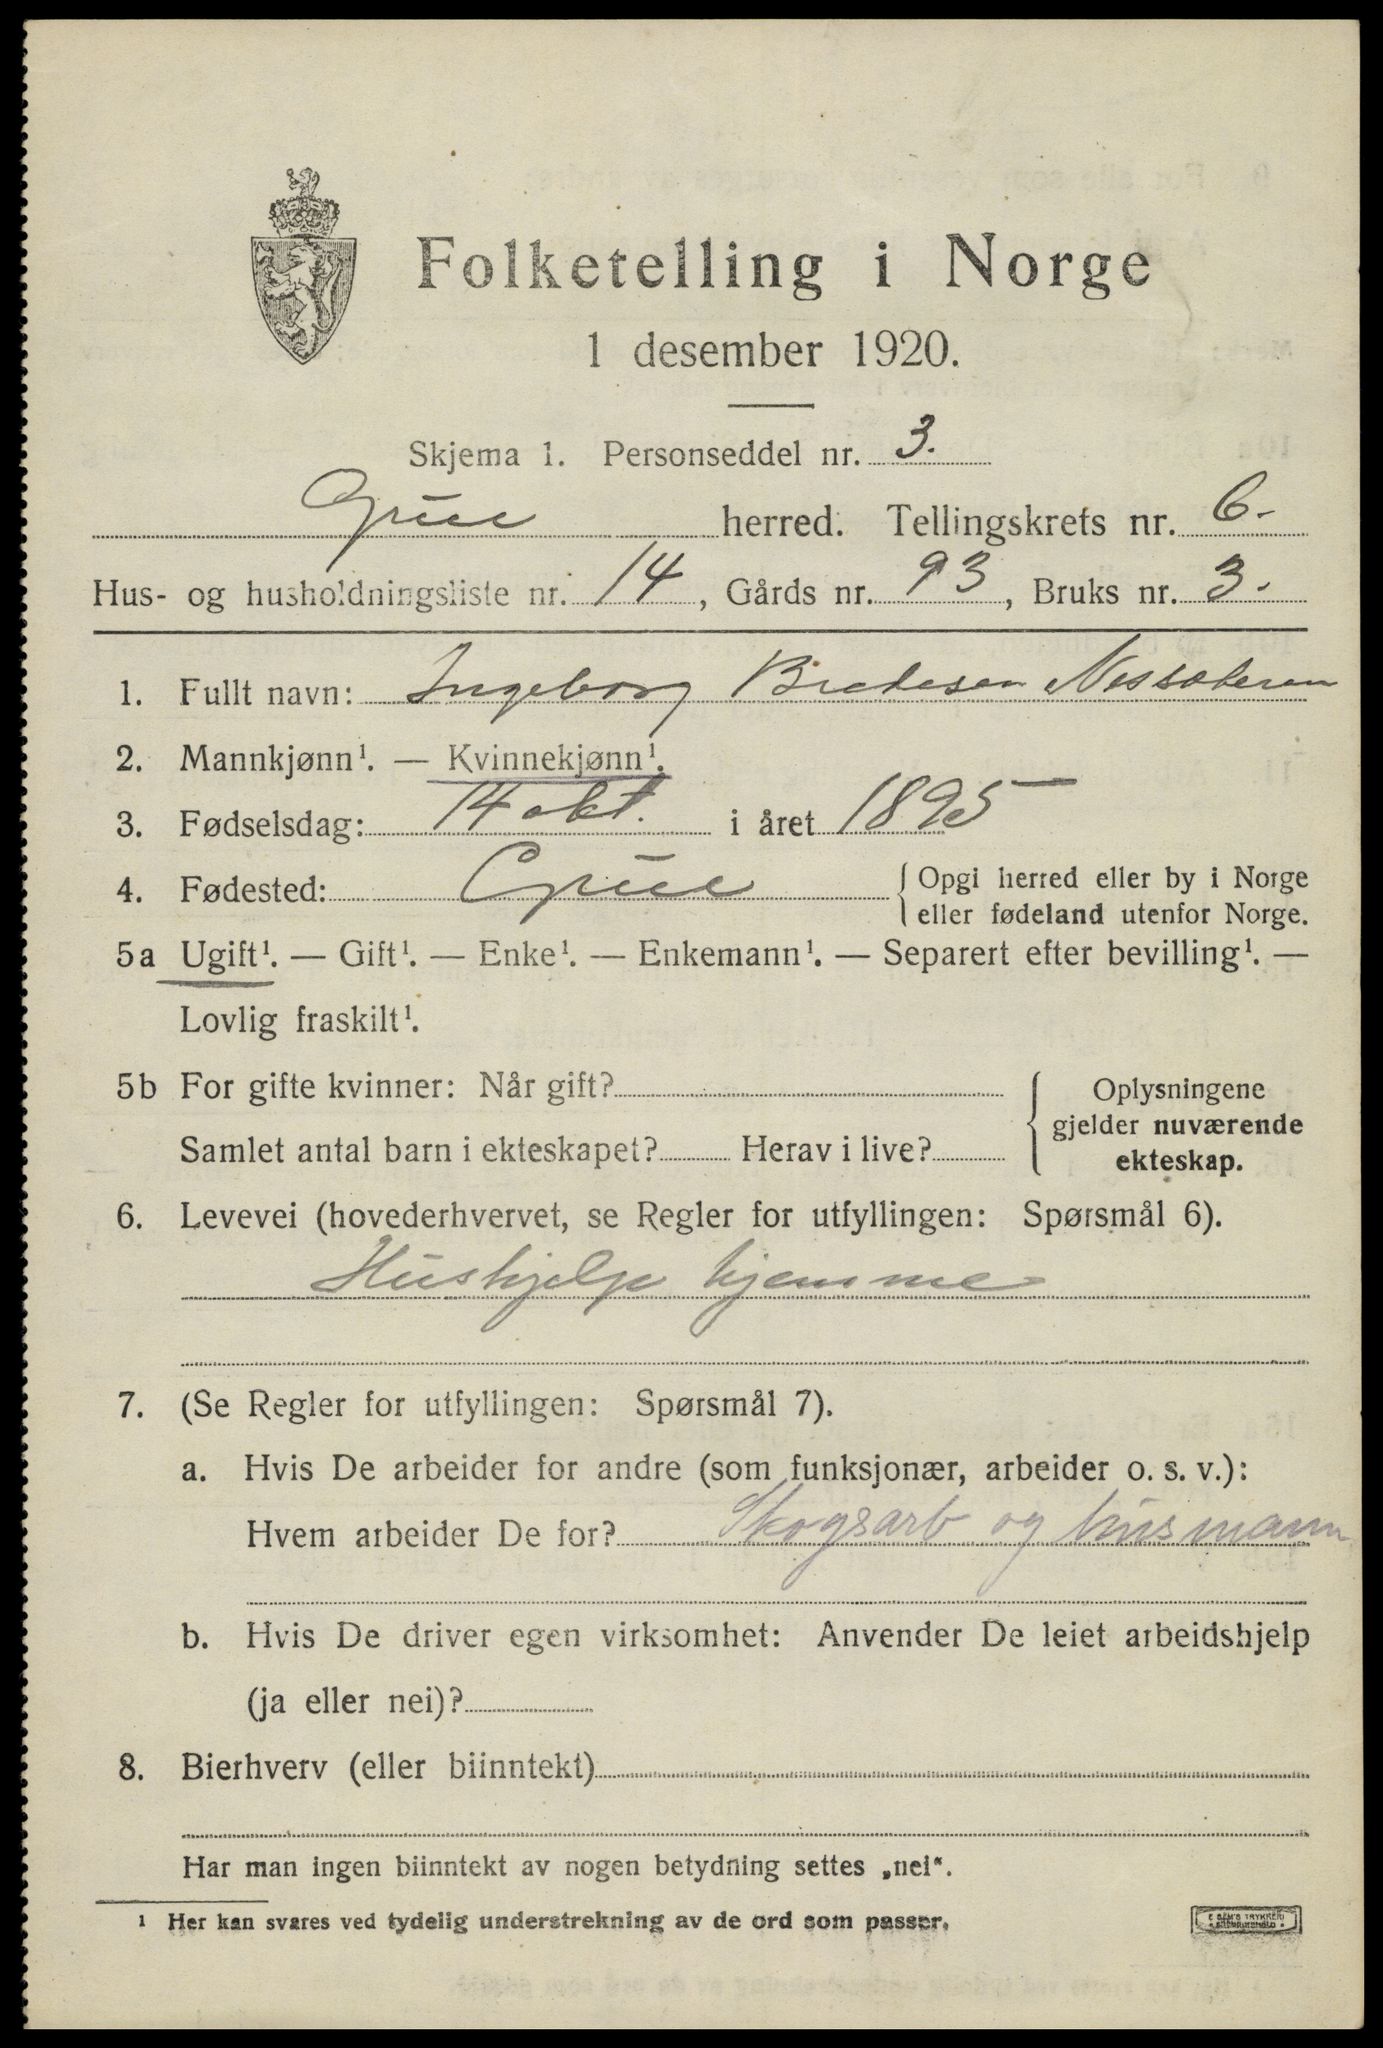 Folketelling i Norge
1 desember 1920.
Skjema 1. Personseddel nr. 3.
Grue herred. Tellingskrets nr. 6.
Hus- og husholdningsliste nr. 14, Gårds nr. 93, Bruks nr. 3.
1. Fullt navn: Ingeborg Bredesen Nessæteren
2. Mannkjønn¹. — Kvinnekjønn¹.
3. Fødselsdag: 14 okt. i året 1895
4. Fødested: Grue { Opgi herred eller by i Norge
eller fødeland utenfor Norge.
5a Ugift¹. — Gift¹. — Enke¹. — Enkemann¹. — Separert efter bevilling¹. —
Lovlig fraskilt¹.
5b For gifte kvinner: Når gift?
Samlet antal barn i ekteskapet? Herav i live?
Oplysningene
gjelder nuværende
ekteskap.
6. Levevei (hovederhvervet, se Regler for utfyllingen: Spørsmål 6).
Hushjelp hjemme
7. (Se Regler for utfyllingen: Spørsmål 7).
a. Hvis De arbeider for andre (som funksjonær, arbeider o. s. v.):
Hvem arbeider De for? Skogsarb og husmann
b. Hvis De driver egen virksomhet: Anvender De leiet arbeidshjelp
(ja eller nei)?
8. Bierhverv (eller biinntekt)
Har man ingen biinntekt av nogen betydning settes „nei".
¹ Her kan svares ved tydelig understrekning av de ord som passer.